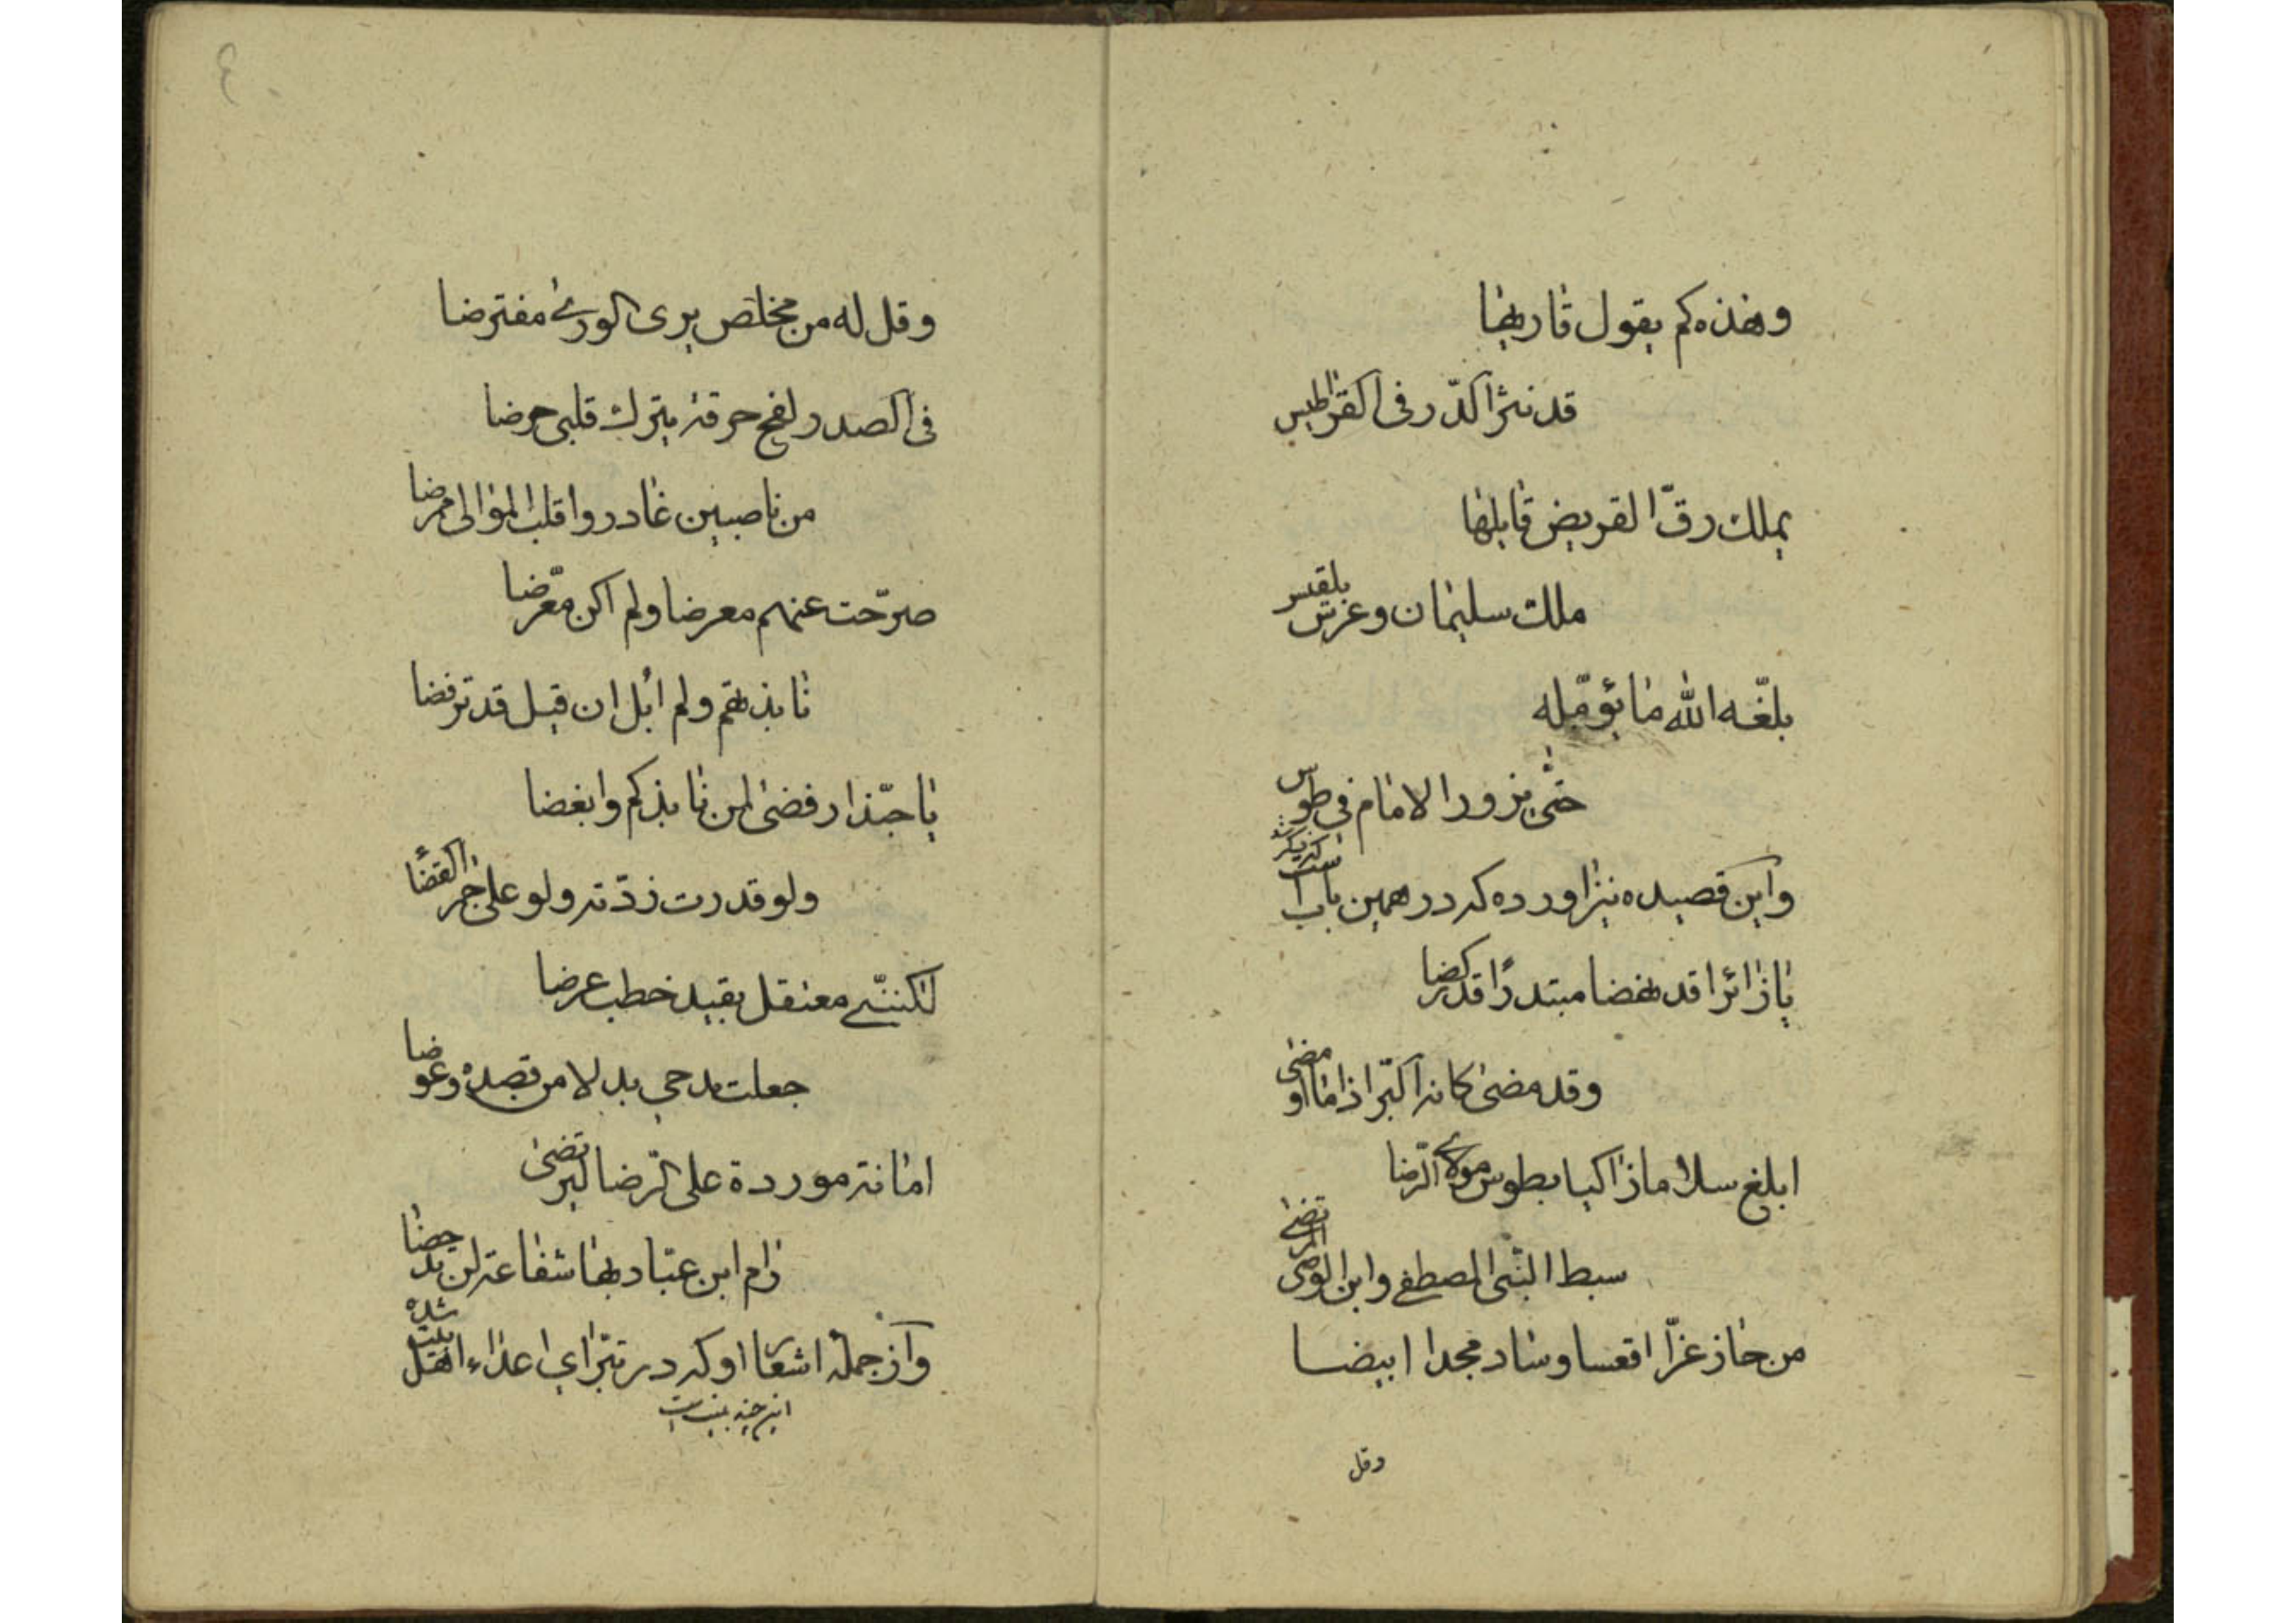 وهذه كم يقول قاريها
قد نثر الدّر فى القراطيس
يملك رقّ القريض قايلها
ملك سليمان وعرش بلقيس
بلّغه الله ما يؤمّله
حتّى يزور الامام فى طوس
واين قصيده نيز اورده كه در همين باب
يا زائرا قد نهضا مبتدرًا قد ركضا
وقد مضى كانه البرّ اذا ما اومضى
ابلغ سلاما زاكيا بطوس مولاى الرّضا
سبط النّبى المصطفى وابن الوصى المرتضى
من حاز عزّا اقعسا وشاد مجدا ابيضا
وقل
وقل له من مخلص يرى الورى مفترضا
فى الصدر لفح حرقة يترك قلبى حرضا
من ناصبين غادروا قلب الموالى ممرضا
صرّحت عنهم معرضا ولم اكن معرّضا
نابذتهم ولم ابل ان قيل قد ترفضا
يا حبّذا رفضى لمن نابذكم وابغضا
ولو قدرت زدته ولو على جمر الغضا
لكننّى معتقل بقيد خطب عرضا
جعلت مدحى بدلا من قصده وعوضا
امانة موردة على الرّضا ليرتضى
رام ابن عبّاد بها شفاعة لن يدحضا
واز جملهٔ اشعار او كه در تبرّاى اعداء اهل بيت شده
اين چند بيت است